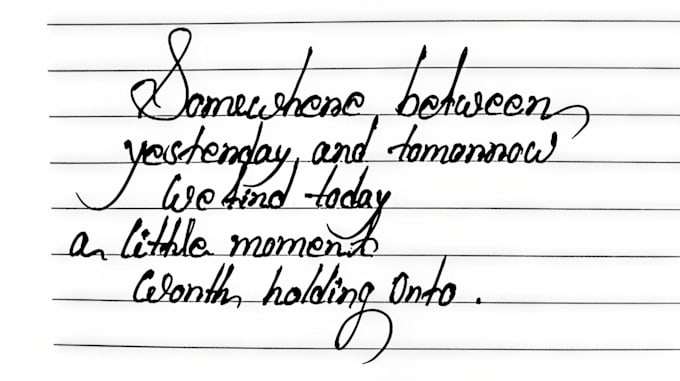 Somewhere between
yesterday and tomorrow
We find today
a little moment
Worth holding onto.